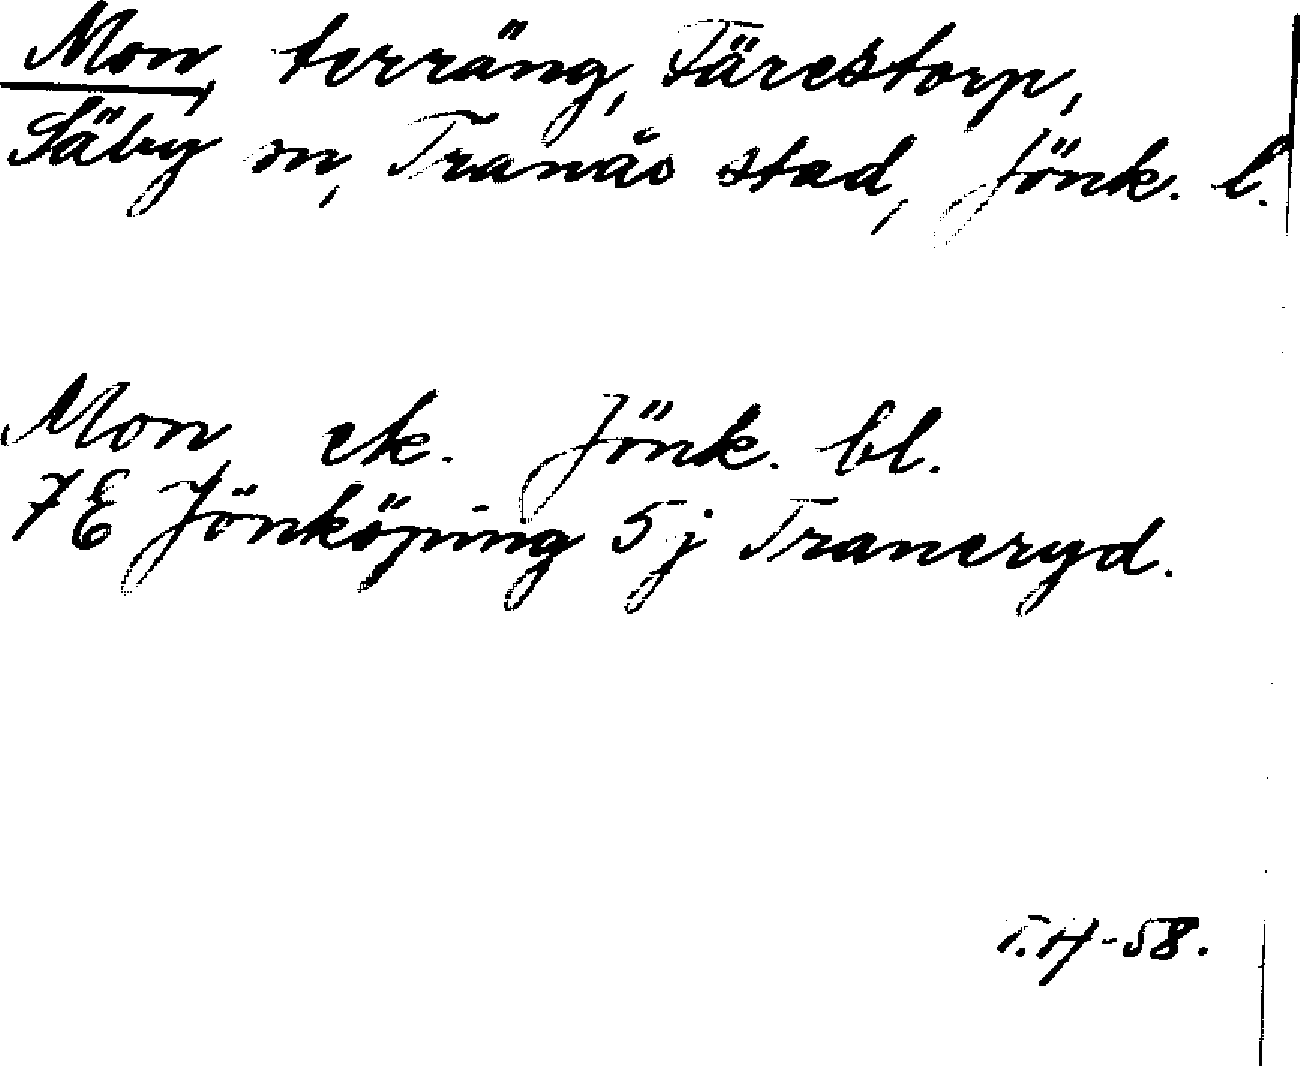 Mon, terräng, Färestorp,
Säby sn, Tranås stad, Jönk. l.
Mon, ek. Jönk. bl.
7E Jönköping 5j Traneryd.
T.H-58.